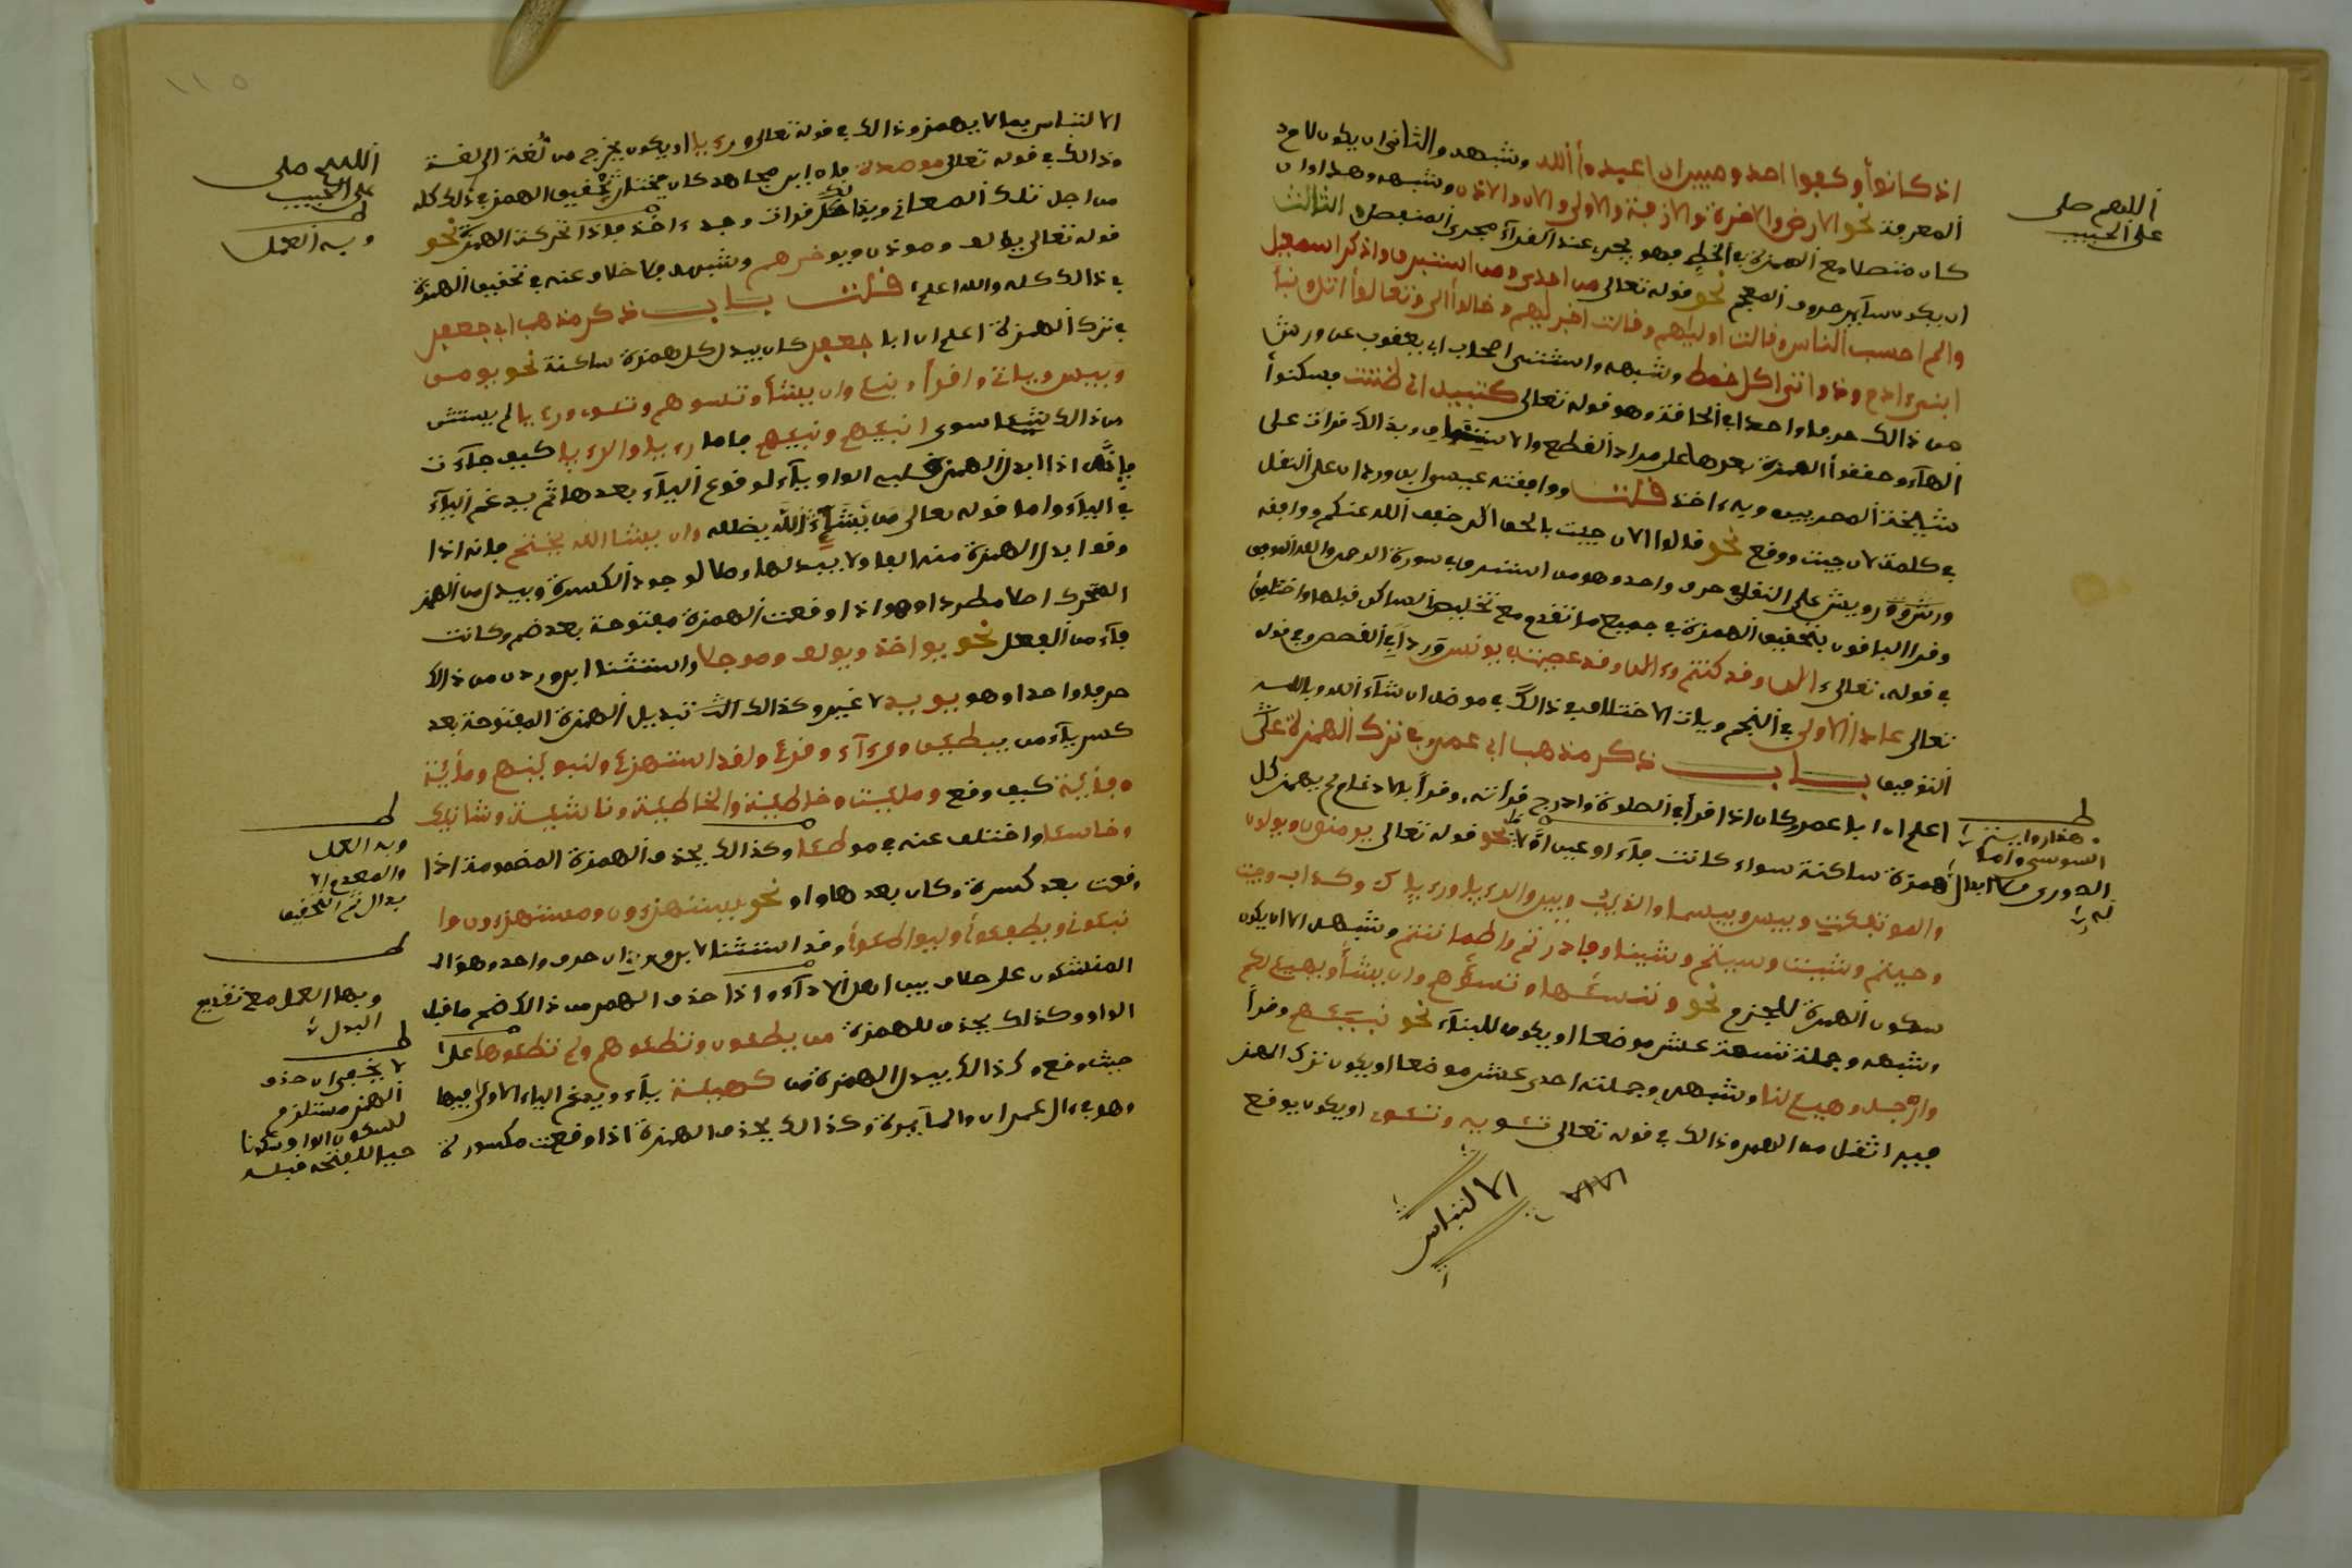 اذ كانوا وكفوا احد ومبين ان اعبدوا الله وشبهه والثانى ان يكون لام
المعرفة نحو الارض والاخرة والازفة والاولى والان والاذن وشبهه وهذا وان
كان متصلا مع الهمزة فى الخط فهو يجرى عند القرآء مجرى المنفصل والثالث
ان يكون سآير حروف المعجم نحو قوله تعالى من امن ومن استبرق واذكر اسمعيل
والم احسب الناس وقالت اوليهم وقالت اخريهم وخلوا الى وتعالوا اتل ونبأ
ابنى ءادم وذواتى اكل خمط وشبهه واستثنى اصحاب ابى يعقوب عن ورش
من ذالك حرفا واحدا فى الحاقة وهو قوله تعالى كتبيه انى ظننت فسكنوا
الهآء وحققوا الهمزة بعدها على مراد القطع والاستيناف وبذالك قرات على
مشيخة المصريين وبه ءاخذ قلت ووافقه عيسى ابن وردان على النقل
فى كلمة الان حيث ووقع نحو قالوا الان جيت بالحق الان خفف الله عنكم ووافقه
ورش ورويس على النقل فى حرف واحد وهو من استبرق فى سورة الرحمن والله الموفق
وقرا الباقون بتحقيق الهمزة فى جميع ما تقدم مع تخليص الساكن قبلها واختلفوا
فى قوله تعالى ءالن وقد كنتم وءالن وقد عصيت فى يونس وردا فى القصص وفى قوله
تعالى عادا الاولى فى النجم وياتى الاختلاف فى ذالك فى موضعه ان شآء الله وبالله
التوفيق باب ذكر مذهب ابى عمرو فى ترك الهمزة
اعلم ان ابا عمرو كان اذا قرأ فى الصلاة وادرج قرآته وقرأ بالادغام لم يهمز كل
همزة ساكنة سواء كانت فآء او عينا او لاما نحو قوله تعالى يومنون ويولون
والموتفكت وبيس وبيسما والذيب وبير والرءيا ورءياك وكداب وجيت
وجيتم وشيت وشيتم وشينا وفادرتم واطماننتم وشبهه الا ان يكون
سكون الهمزة للجزم نحو وننسئها وتسؤهم وان يشأ ويهيئ لكم
وشبهه وجملة تسعة عشر موضعا او يكون للبنآء نحو نبئهم وقرأ
وارجه وهيئ لنا وشبهه وجملته احدى عشر موضعا او يكون ترك الهمز
فيه اثقل من الهمز وذالك فى قوله تعالى تئويه وتئوى او يكون يوقع
الالتباس
اللهم صلى
على الحبيب
هذا رواية
السوسى واما
الدورى فلا ابدال
له
الالتباس بما لا يهمز وذالك فى قوله تعالى ورءيا او يكون يخرج من لغة الى لغة
وذالك فى قوله تعالى موصدة فان ابن مجاهد كان يختار تحقيق الهمز فى ذلك كله
من اجل تلك المعانى وبذالك قرات وبه ءاخذ فاذا تحركت الهمزة نحو
قوله تعالى يولف وموذن ويوخرهم وشبهه فلا خلاف عنه فى تحقيق الهمزة
فى ذالك كله والله اعلم قلت باب ذكر مذهب ابى جعفر
فى ترك الهمزة اعلم ان ابا جعفر كان يبدل كل همزة ساكنة نحو يومن
وبيس وياتى واقرأ ونبئ وان يشأ وتسوهم وتئوى ورءيا لم يستثن
من ذالك شيئا سوى انبئهم ونبئهم فاما رءيا والرءيا كيف جآءت
فانه اذا ابدل الهمزة قلب الواو يآء لوقوع اليآء بعدها ثم يدغم اليآء
فى اليآء واما قوله تعالى من يشإ الله يضلله وان يشا الله يختم فانه اذا
وقف ابدل الهمزة منه الفا ولا يبدلها وصلا لوجود الكسرة ويبدل من الهمز
المتحرك اصلا مطردا وهو اذا وقعت الهمزة مفتوحة بعد ضم وكانت
فآء من الفعل نحو يواخذ ويولف وموجلا واستثنا ابن وردان من ذالك
حرفا واحدا وهو يويد لا غير وكذالك تبديل الهمزة المفتوحة بعد
كسر يآء من يبطئن ورءآء وقرئ ولقد استهزئ ولنبوئنهم ومائة
وفئة كيف وقع وملئت وخاطئة والخاطئة وناشئة وشانئك
وخاسئا واختلف عنه فى موطئا وكذالك يحذف الهمزة المضمومة اذا
وقعت بعد كسرة وكان بعدها واو نحو يستهزءون ومستهزءون وا
نبئونى ويطفئوا وليواطئوا وقد استثنا ابن وردان حرف واحد وهو ام
المنشئون على خلاف بين اهل الادآء واذا حذف الهمز من ذالك ضم ما قبل
الواو وكذلك يحذف للهمزة من يطئون وتطئوهم ولم تطئوها
حيث وقع وكذالك يبدل الهمزة من كهيئة يآء ويدغم الياء الاولى فيها
وهو فى ءال عمران والمآيدة وكذالك يحذف الهمزة اذا وقعت مكسورة
اللهم صلى
على الحبيب
وبه العمل
وبه العمل
والمقدم
بدال ثم التحقيق
وبها العمل مع تقديم
البدل
لا يخفى ان حذف
الهمز مستلزم
لسكون الواو سكونا
حيا للفتحه قبله
١١٥